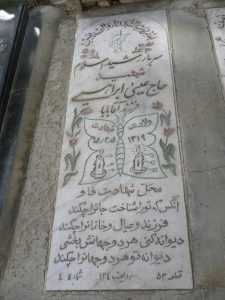 سرباز رشید اسلام
شهید
حاج عیسی ابراهیمی
فرزند آقابابا
ولادت شهادت
۱۳۱۹ ۶۵/۲/۵
محل شهادت فاو
آنکس که تو را شناخت جانرا چکند
فرزند و عیال و خانمانرا چکند
دیوانه کنی هر دو جهانش بخشی
دیوانه تو هر دو جهانرا چکند
قطعه ۵۳ ردیف ۱۲۴ شماره ۴